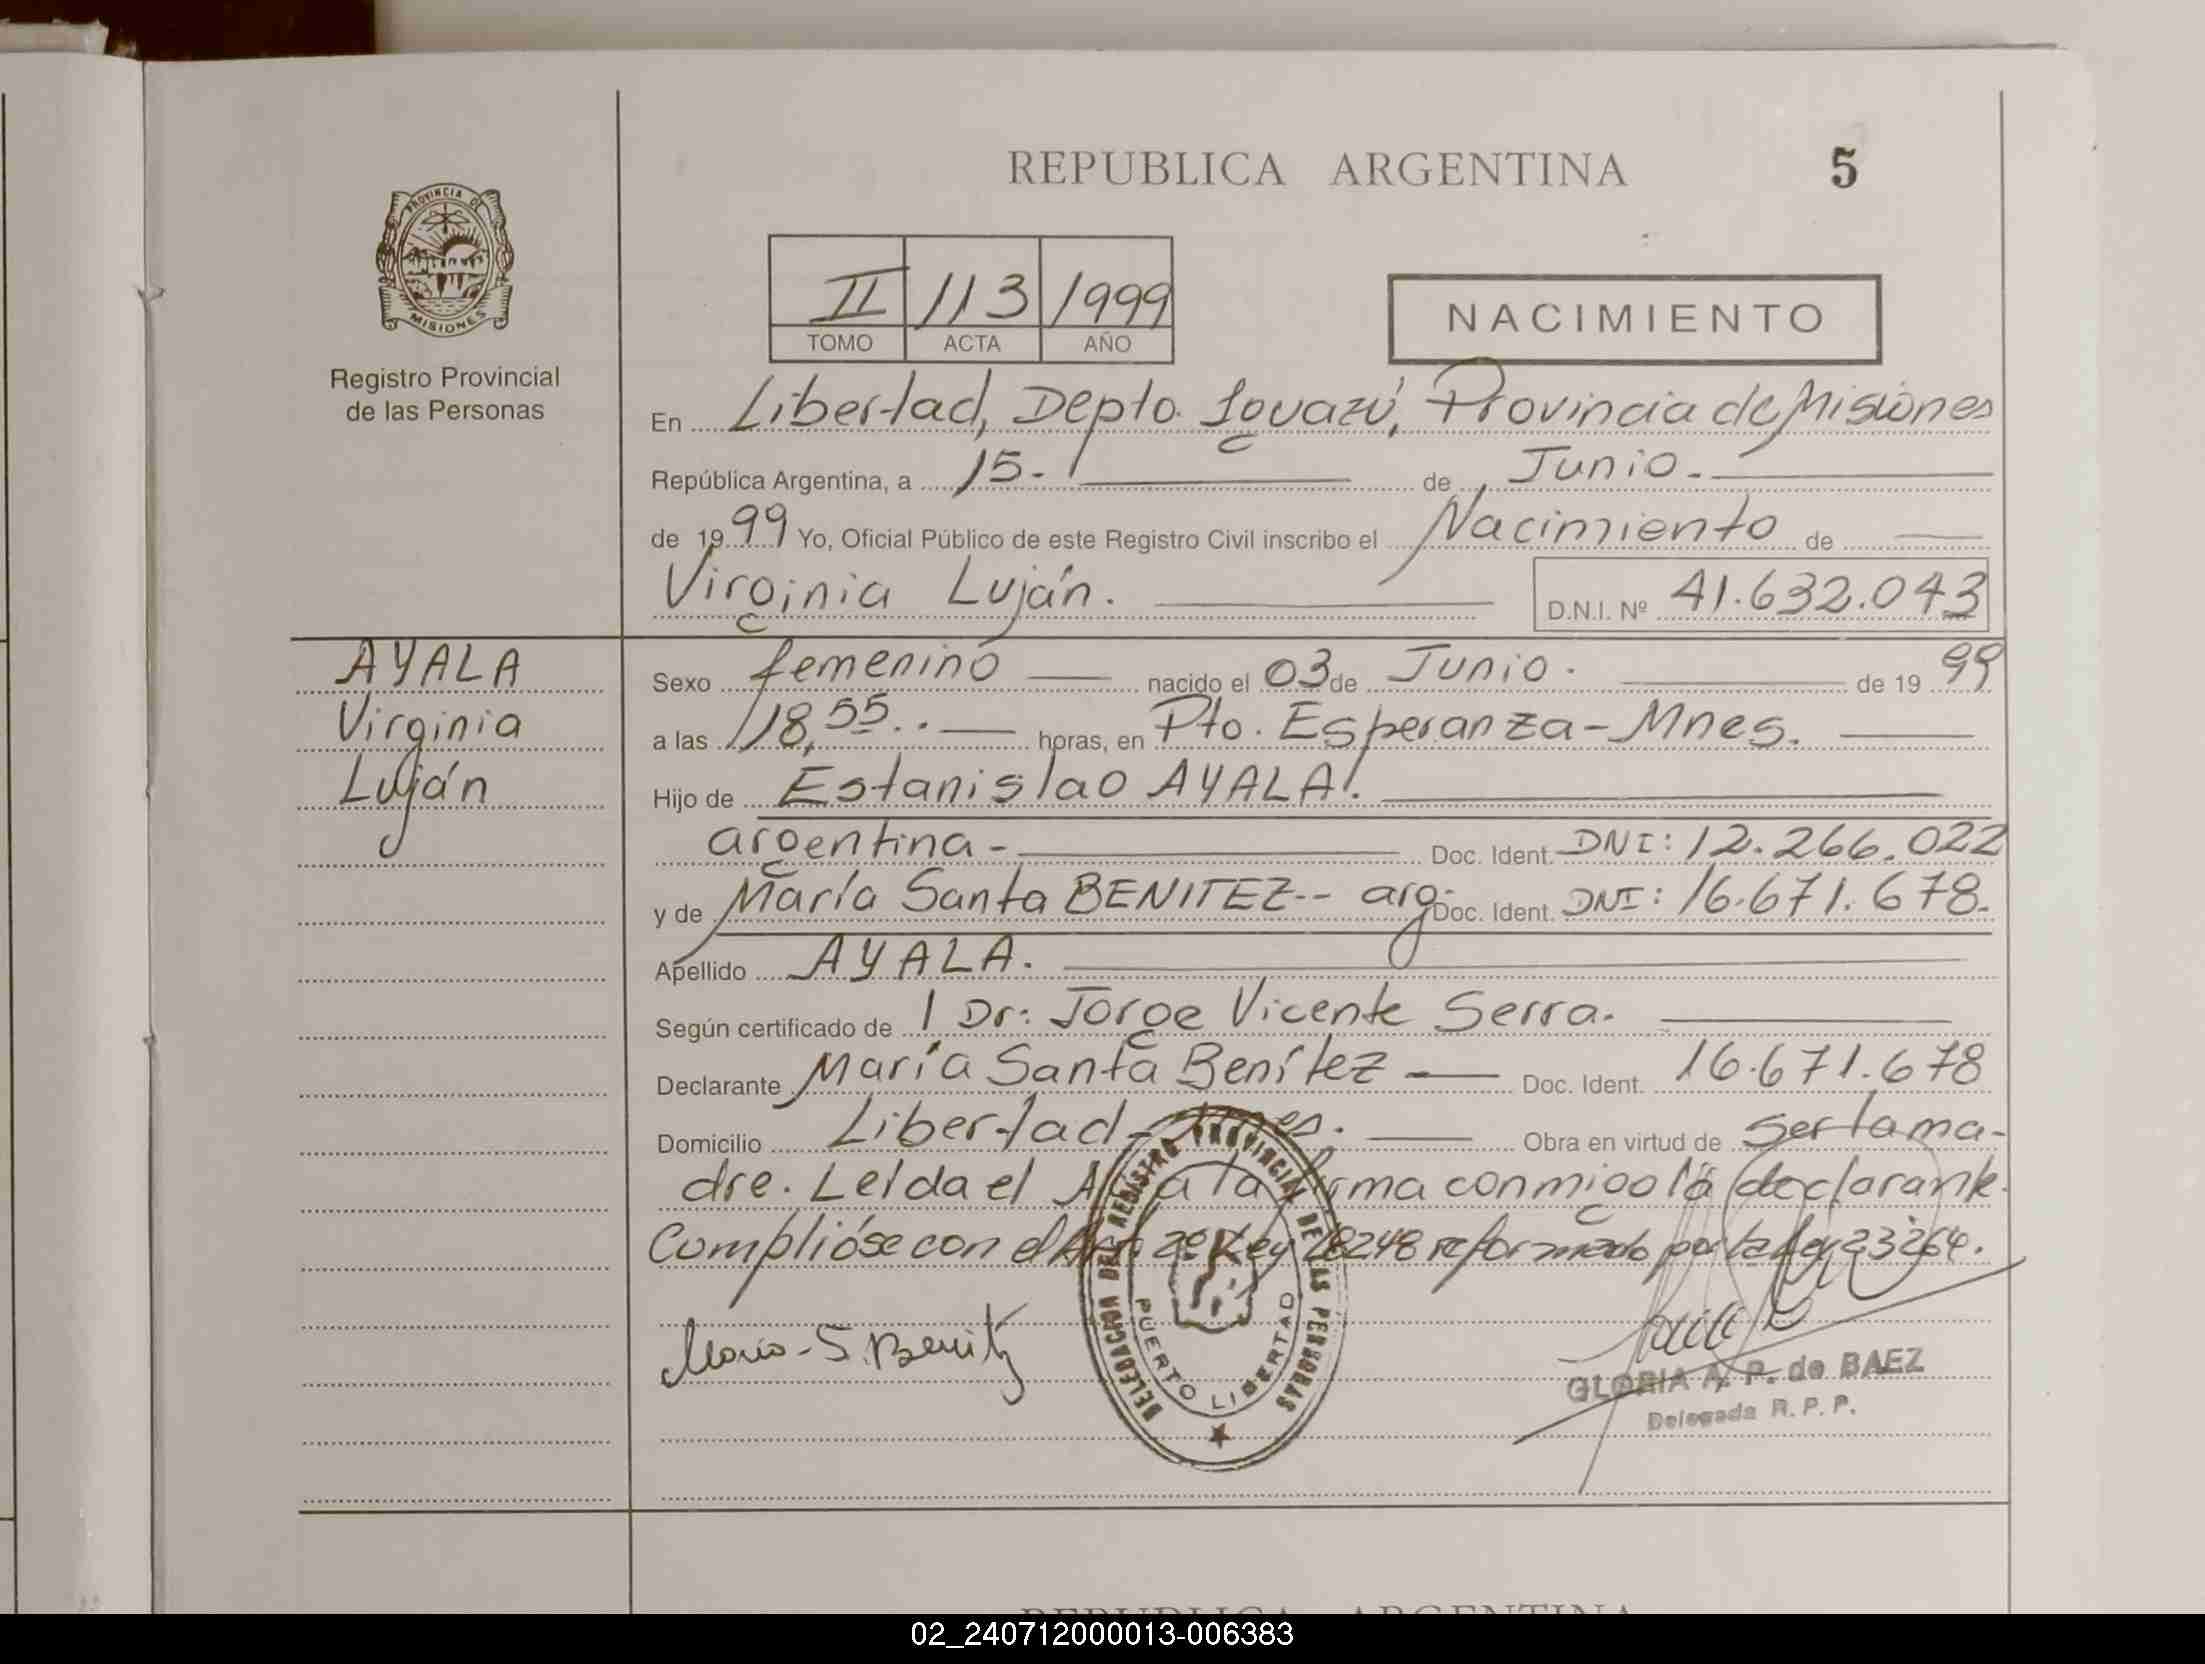 REPUBLICA ARGENTINA 5
PROVINCIA DE
MISIONES
Registro Provincial
de las Personas
II 113 1999
TOMO ACTA AÑO
NACIMIENTO
En Libertad, Depto. Iguazú, Provincia de Misiones
República Argentina, a 15.- de Junio.-
de 1999 Yo, Oficial Público de este Registro Civil inscribo el Nacimiento de
Virginia Luján. D.N.I. Nº 41.632.043
AYALA
Virginia
Luján
Sexo femenino nacido el 03 de Junio. de 1999
a las 18,55.. horas, en Pto. Esperanza-Mnes.
Hijo de Estanislao AYALA.
argentina- Doc. Ident. DNI: 12.266.022
y de María Santa BENITEZ-- arg. Doc. Ident. DNI: 16.671.678.
Apellido AYALA.
Según certificado de Dr: Jorge Vicente Serra.
Declarante María Santa Benítez Doc. Ident. 16.671.678
Domicilio Libertad-Mnes. Obra en virtud de ser la ma-
dre. Leída el Acta la firma conmigo la declarante.
Cumplióse con el Art. 2º Ley 18248 reformado por la Ley 23264.
María-S. Benitz
DELEGACION DEL REGISTRO PROVINCIAL DE LAS PERSONAS
PUERTO LIBERTAD
GLORIA A. P. de BAEZ
Delegada R. P. P.
REPUBLICA ARGENTINA
02_240712000013-006383